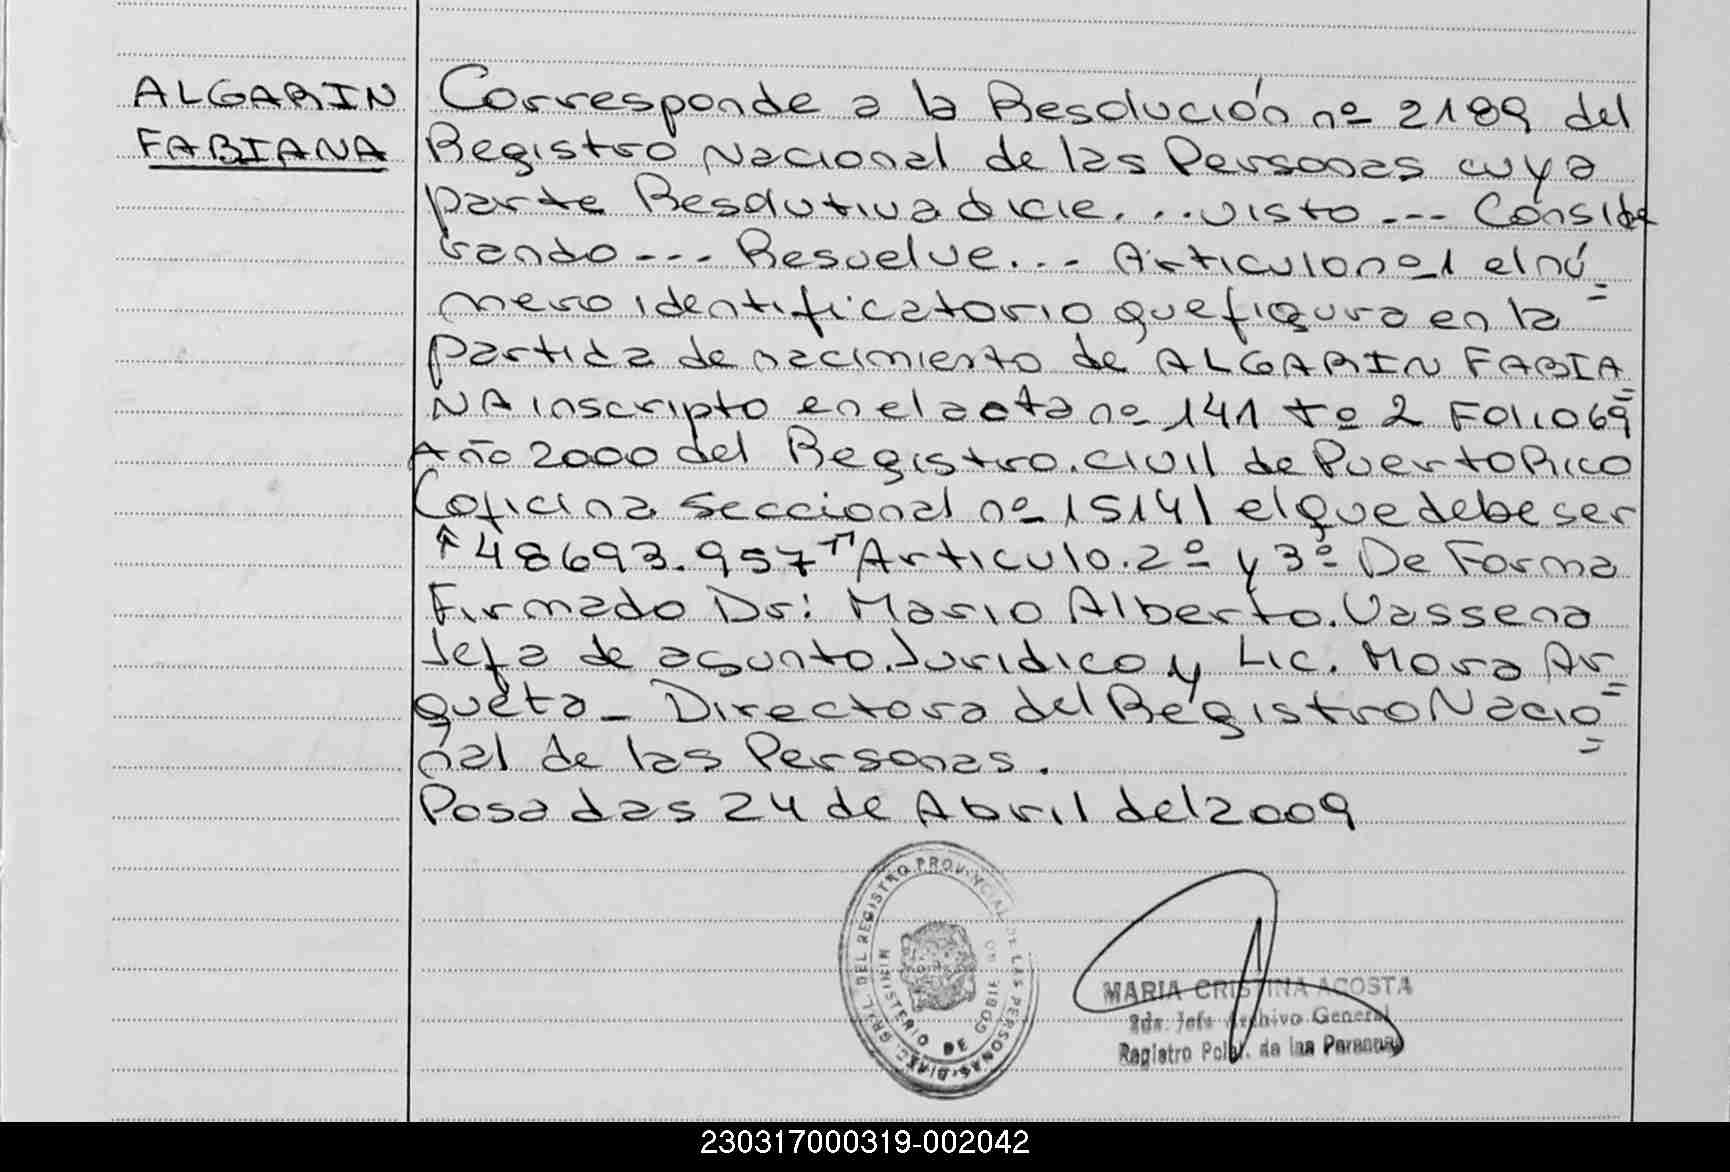 ALGARIN
FABIANA
Corresponde a la Resolución nº 2189 del
Registro Nacional de las Personas cuya
parte Resolutiva dicie...visto --- Conside
rando --- Resuelve... Articulo nº 1 el nú=
mero identificatorio que figura en la
partida de nacimiento de ALGARIN FABIA=
NA inscripto en el acta nº 141 tº 2 Folio 69
Año 2000 del Registro.civil de Puerto Rico
(oficina seccional nº 1514) el que debe ser
"48693.957" Articulo.2º y 3º De Forma
Firmado Dr: Mario Alberto.Vassena
Jefa de asunto.Juridico y Lic. Mora Ar=
queta_Directora del Registro Nacio=
nal de las Personas.
Posadas 24 de Abril del 2009
DIREC. GRAL. DEL REGISTRO PROVINCIAL DE LAS PERSONAS
MINISTERIO DE GOBIERNO
MARIA CRISTINA ACOSTA
Jefe Archivo General
Registro de las Personas
230317000319-002042